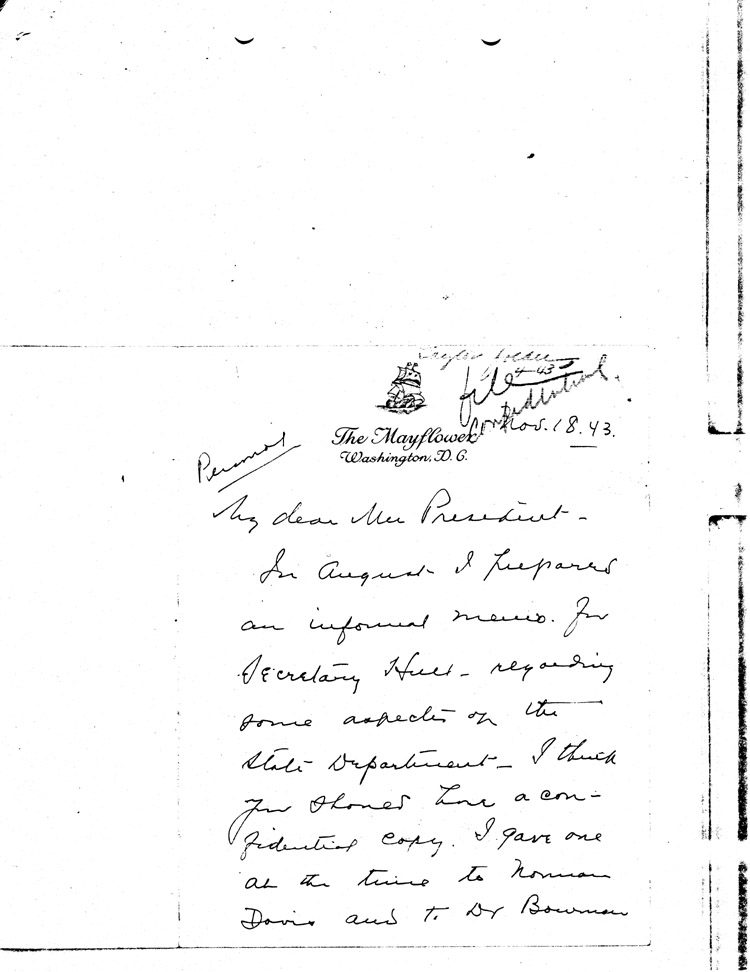 Taylor
file 4-43
Confidential.
The Mayflower
Washington, D.C.
Nov. 18. 43.
Personal
My dear Mr President -
In August I prepared
an informal memo. for
Secretary Hull - regarding
some aspects of the
State Department - I think
you should have a con-
fidential copy. I gave one
at the time to Norman
Davis and to Dr Bowman